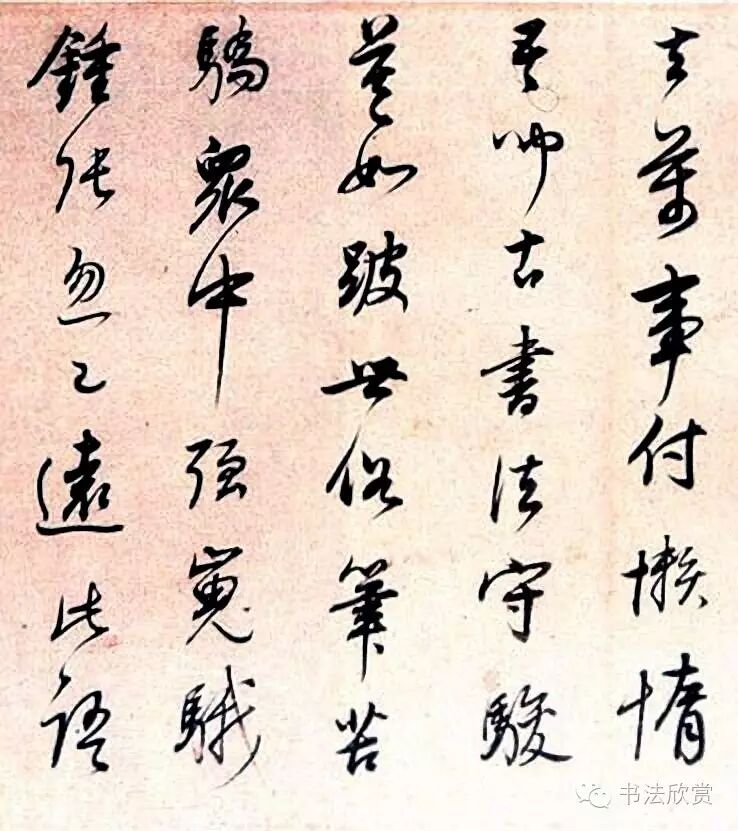 去萬事付懶惰
吾聞古書法守駿
莫如跛世俗筆苦
驕衆中强嵬騀
鍾張忽已遠此語
书法欣赏